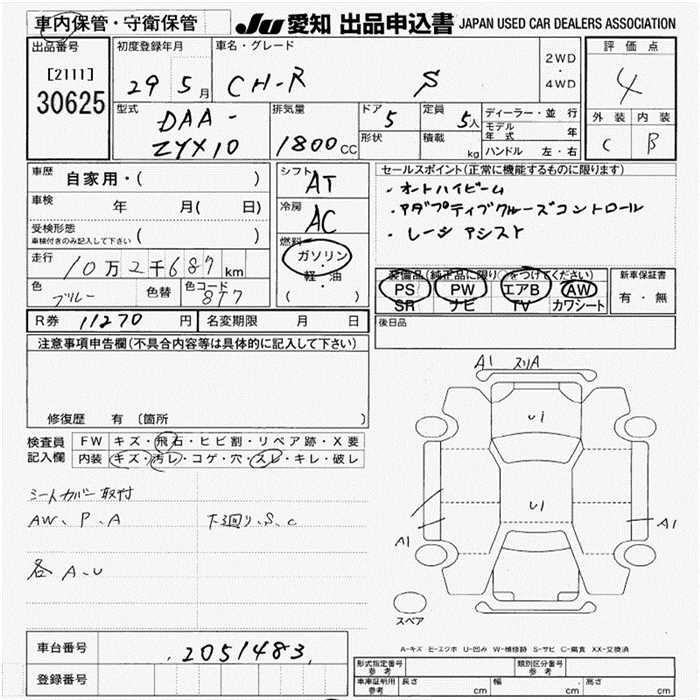 車内保管・守衛保管
JU 愛知 出品申込書 JAPAN USED CAR DEALERS ASSOCIATION
出品番号
[2111]
30625
初度登録年月
29 5月
車名・グレード
CH-R S
2WD
・
4WD
評価点
4
外装 内装
C B
型式
DAA-
ZYX10
排気量
1800CC
ドア
5
形状
定員
5人
積載
kg
ディーラー・並行
モデル年式 年
ハンドル 左・右
車歴 自家用・( )
車検 年 月( 日)
受検形態
車検付きのみ記入して下さい ( )
走行 10万2千687km
色 ブルー 色替 色コード 8T7
シフト
AT
冷房
AC
燃料
ガソリン・
軽・油
( )
セールスポイント(正常に機能するものに限ります)
・オートハイビーム
・アダプティブクルーズコントロール
・レーンアシスト
装備品(純正品に限り○をつけてください)
PS PW エアB AW
SR ナビ TV カワシート
新車保証書
有・無
R券 11270円 名変期限 月 日
後日品
注意事項申告欄(不具合内容等は具体的に記入して下さい)
修復歴 有〔箇所 〕
検査員
記入欄
FW キズ・飛石・ヒビ割・リペア跡・X要
内装 キズ・汚レ・コゲ・穴・スレ・キレ・破レ
シートカバー取付
AW、P、A 下廻り、S、C
各 A、U
A1 スリA
U1
U1
A1
A1
スペア
A-キズ E-エクボ U-凹み W-補修跡 S-サビ C-腐食 XX-交換済
車台番号 2051483
登録番号
形式指定番号
参考
類別区分番号
参考
車庫証明用
参考
長さ cm 幅 cm 高さ cm